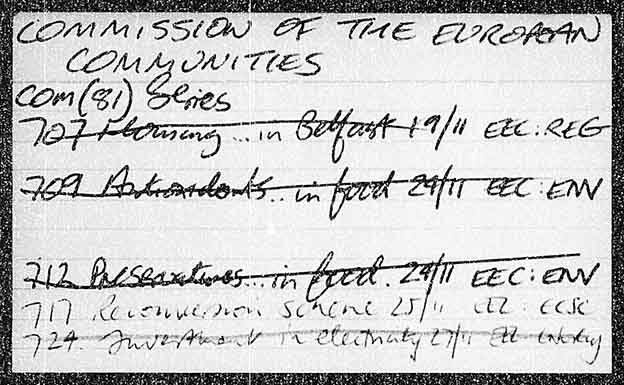 COMMISSION OF THE EUROPEAN
COMMUNITIES
COM(81) Series
707 Housing... in Belfast 19/11 EEC: REG
709 Antioxidants... in food 24/11 EEC: ENV
712 Preservatives... in food. 24/11 EEC: ENV
717 Reconversion scheme 25/11 EEC: ECSC
724. Investment in electricity 27/11 EEC energy